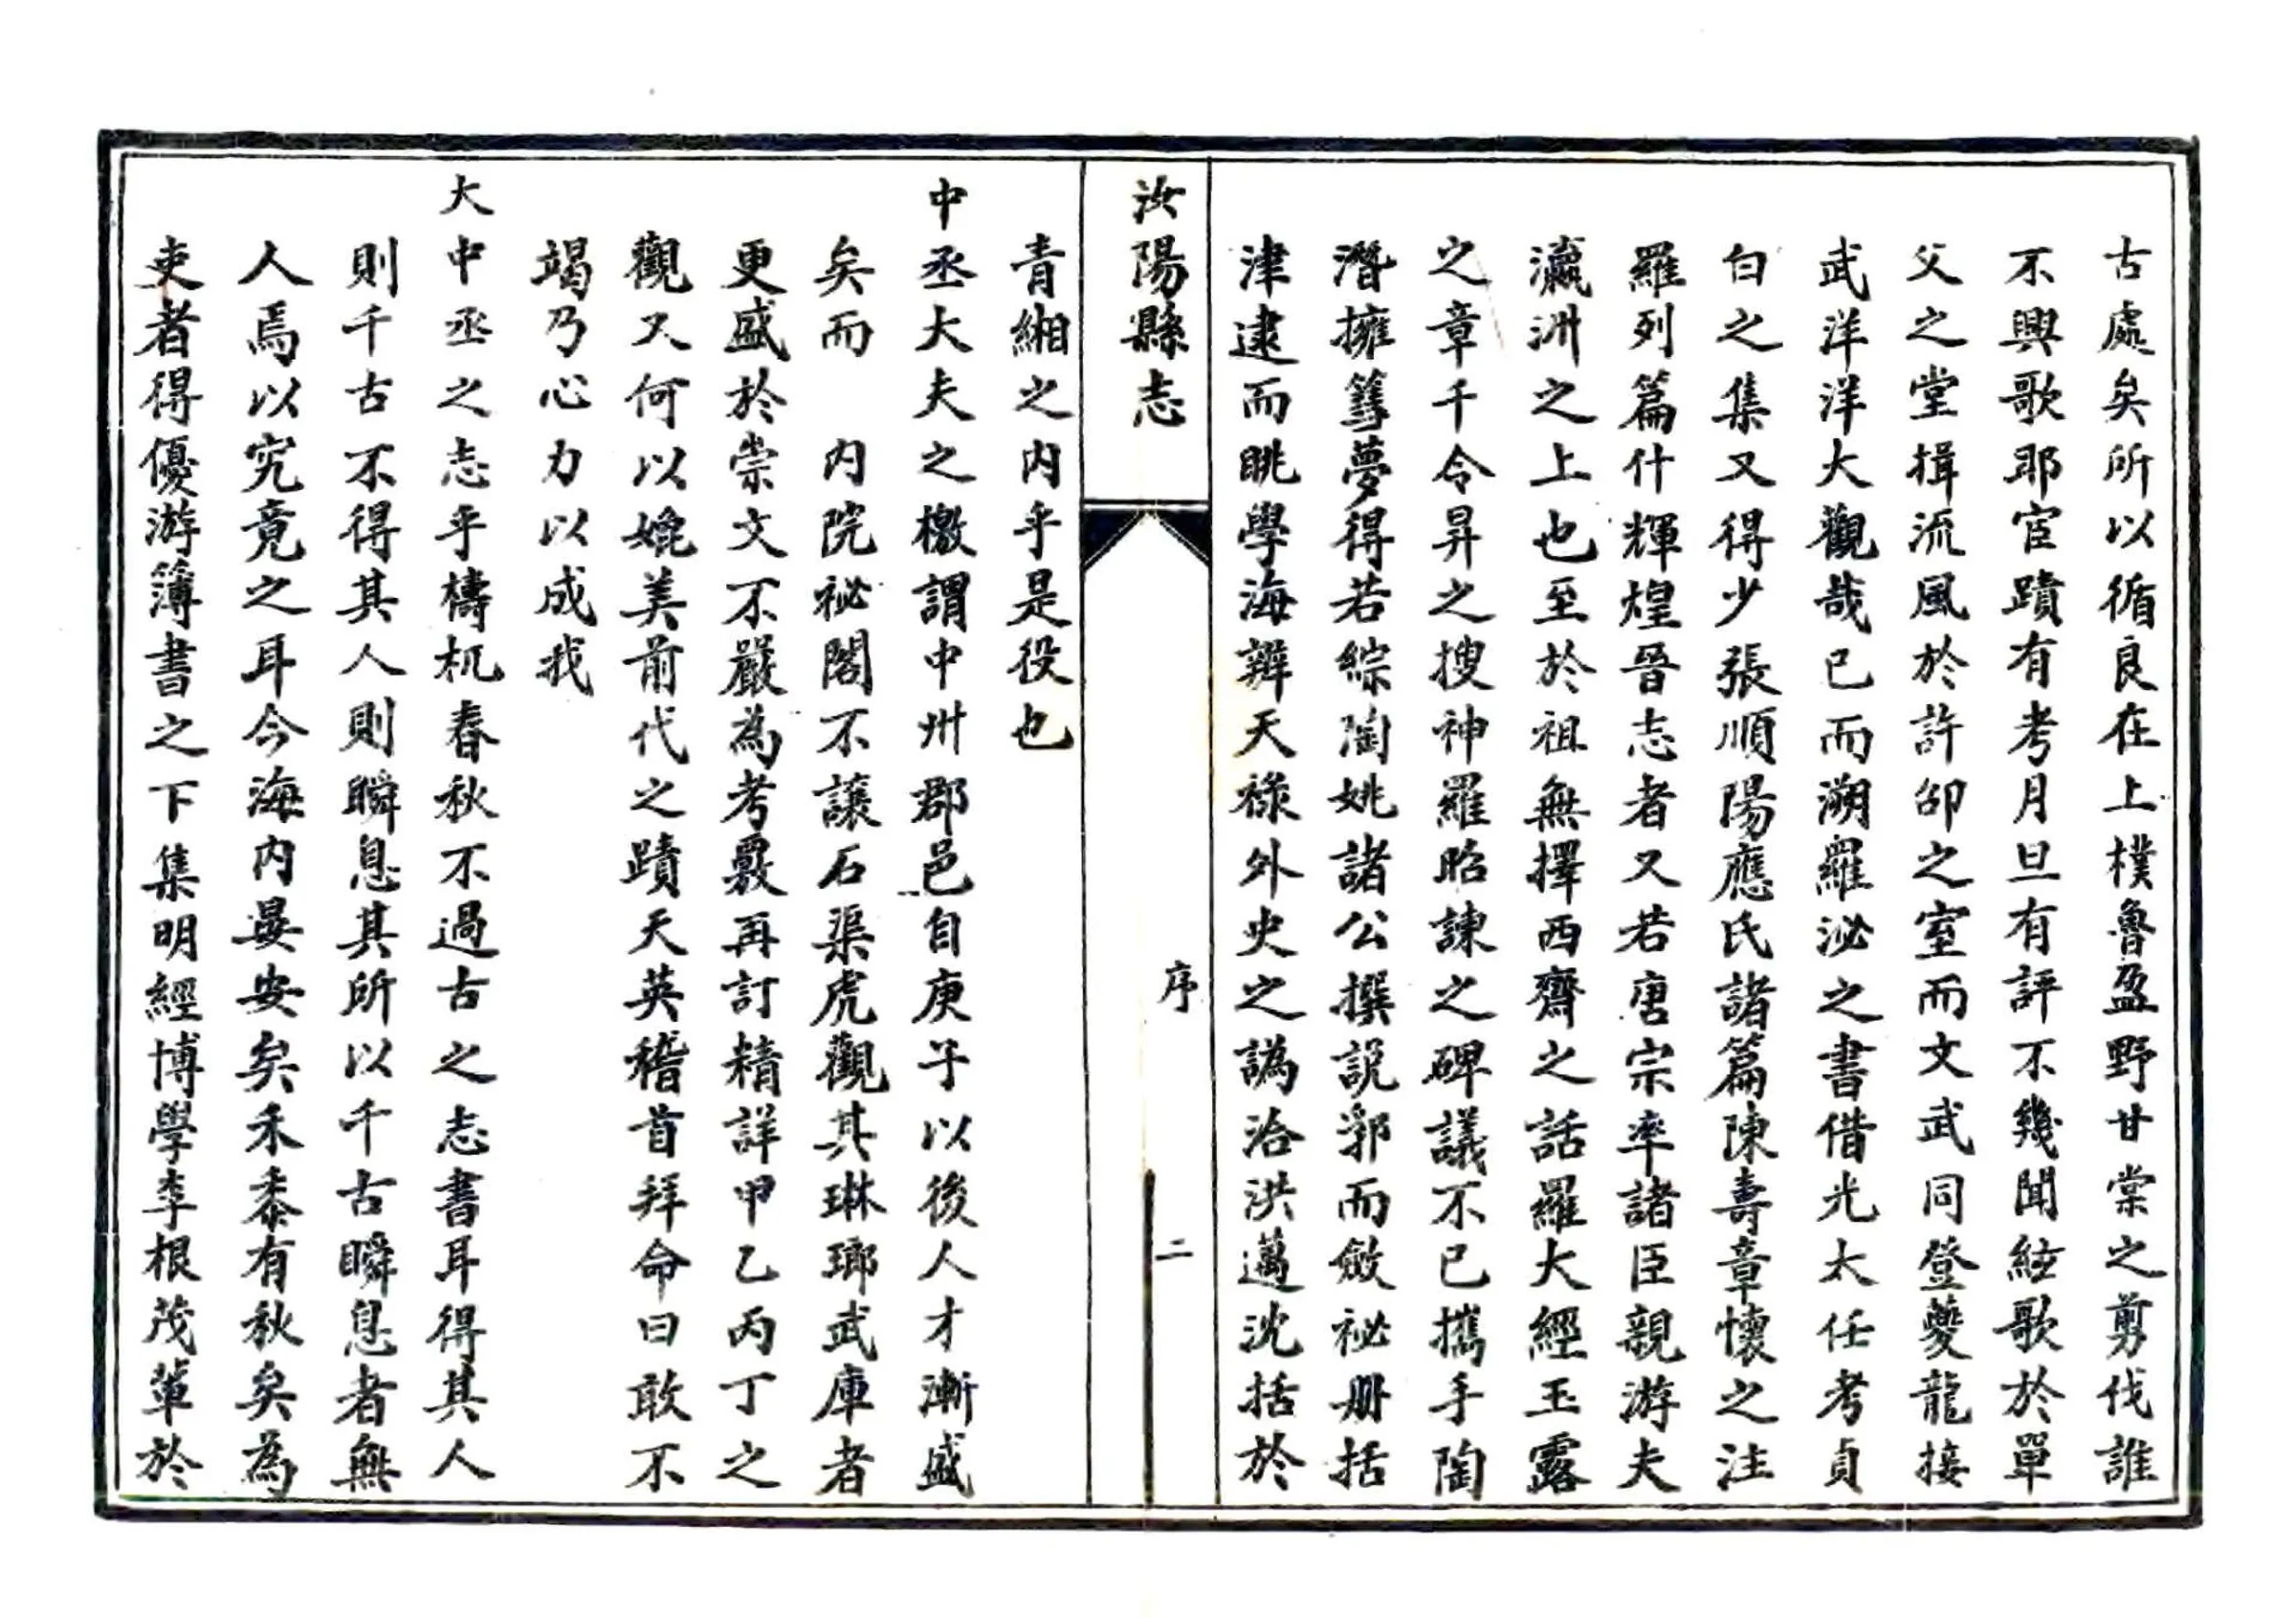 古處矣所以循良在上樸魯盈野甘棠之剪伐誰
不興歌耶宦蹟有考月旦有評不幾聞絃歌於單
父之堂揖流風於許邵之室而文武同登夔龍接
武洋洋大觀哉已而溯羅泌之書借光太任考貞
白之集又得少張順陽應氏諸篇陳壽章懷之注
羅列篇什輝煌晉志者又若唐宗率諸臣親游夫
瀛洲之上也至於祖無擇西齋之話羅大經玉露
之章千令昇之搜神羅昭諫之碑議不已攜手陶
潛擁篲夢得若綜陶姚諸公撰說郛而斂祕册括
津逮而眺學海辨天祿外史之譌洽洪邁沈括於
汝陽縣志
序
二
青緗之內乎是役也
中丞大夫之檄謂中州郡邑自庚子以後人才漸盛
矣而 內院祕閣不讓石渠虎觀其琳瑯武庫者
更盛於崇文不嚴為考覈再訂精詳甲乙丙丁之
觀又何以媲美前代之蹟天英稽首拜命曰敢不
竭乃心力以成我
大中丞之志乎檮杌春秋不過古之志書耳得其人
則千古不得其人則瞬息其所以千古瞬息者無
人焉以究竟之耳今海內晏安矣禾黍有秋矣為
吏者得優游簿書之下集明經博學李根茂軰於